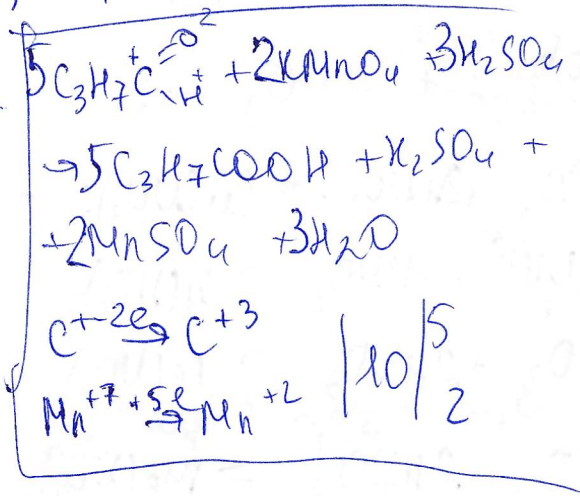 5C₃H₇C⁺(=O²)(-H⁺) + 2KMnO₄ + 3H₂SO₄
→ 5C₃H₇COOH + K₂SO₄ +
+ 2MnSO₄ + 3H₂O
C⁺ -2e → C⁺³ | 10 | 5
Mn⁺⁷ +5e → Mn⁺² | 2